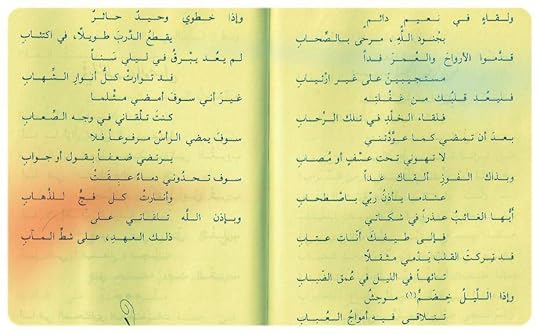 ولقاءٍ في نعيمٍ دائمٍ
بجُنودِ اللَّهِ، مرحى بالصِّحابِ
قدَّموا الأرواحَ والعُمرَ فداً
مستجيبينَ على غير ارْتيابِ
فليعُد قلبُك من غفلتِه
فلقاءُ الخلدِ في تلك الرِّحابِ
بعدَ أن تمضي كما عوَّدتَني
لا تهوني تحت عسْفٍ أو مُصابِ
وبذاك الفوزِ ألقاك غداً
عندما يأذنُ ربّي باصْطحابِ
أيُّها الغائبُ عذراً في شكاتي
فإلى طيفكَ أنّات عتابِ
قد تركتَ القلبَ يَدْمي مثقلاً
تائهاً في الليلِ في عُمقِ الضّبابِ
وإذا اللَّيلُ خِضَمٌّ (١) موحشٌ
تتلاقى فيه أمواجُ العُبابِ
وإذا خطوي وحيدٌ حائرٌ
يقطعُ الدربَ طويلاً، في اكتئابِ
لم يعُد يبْرقُ في ليلي سَناً
قد توارتْ كلُّ أنوارِ الشِّهابِ
غيرَ أني سوف أمضي مثْلما
كنتَ تلْقاني في وجه الصِّعابِ
سوفَ يمضي الرأسُ مرفوعاً فلا
يرتضي ضعْفاً بقولٍ أو جوابِ
سوف تحدُوني دماءٌ عبِقَتْ
وأنارتْ كل فجٍّ للذَّهابِ
وبإذنِ اللَّه تلقاني على
ذلك العهدِ، على شطِّ المآبِ